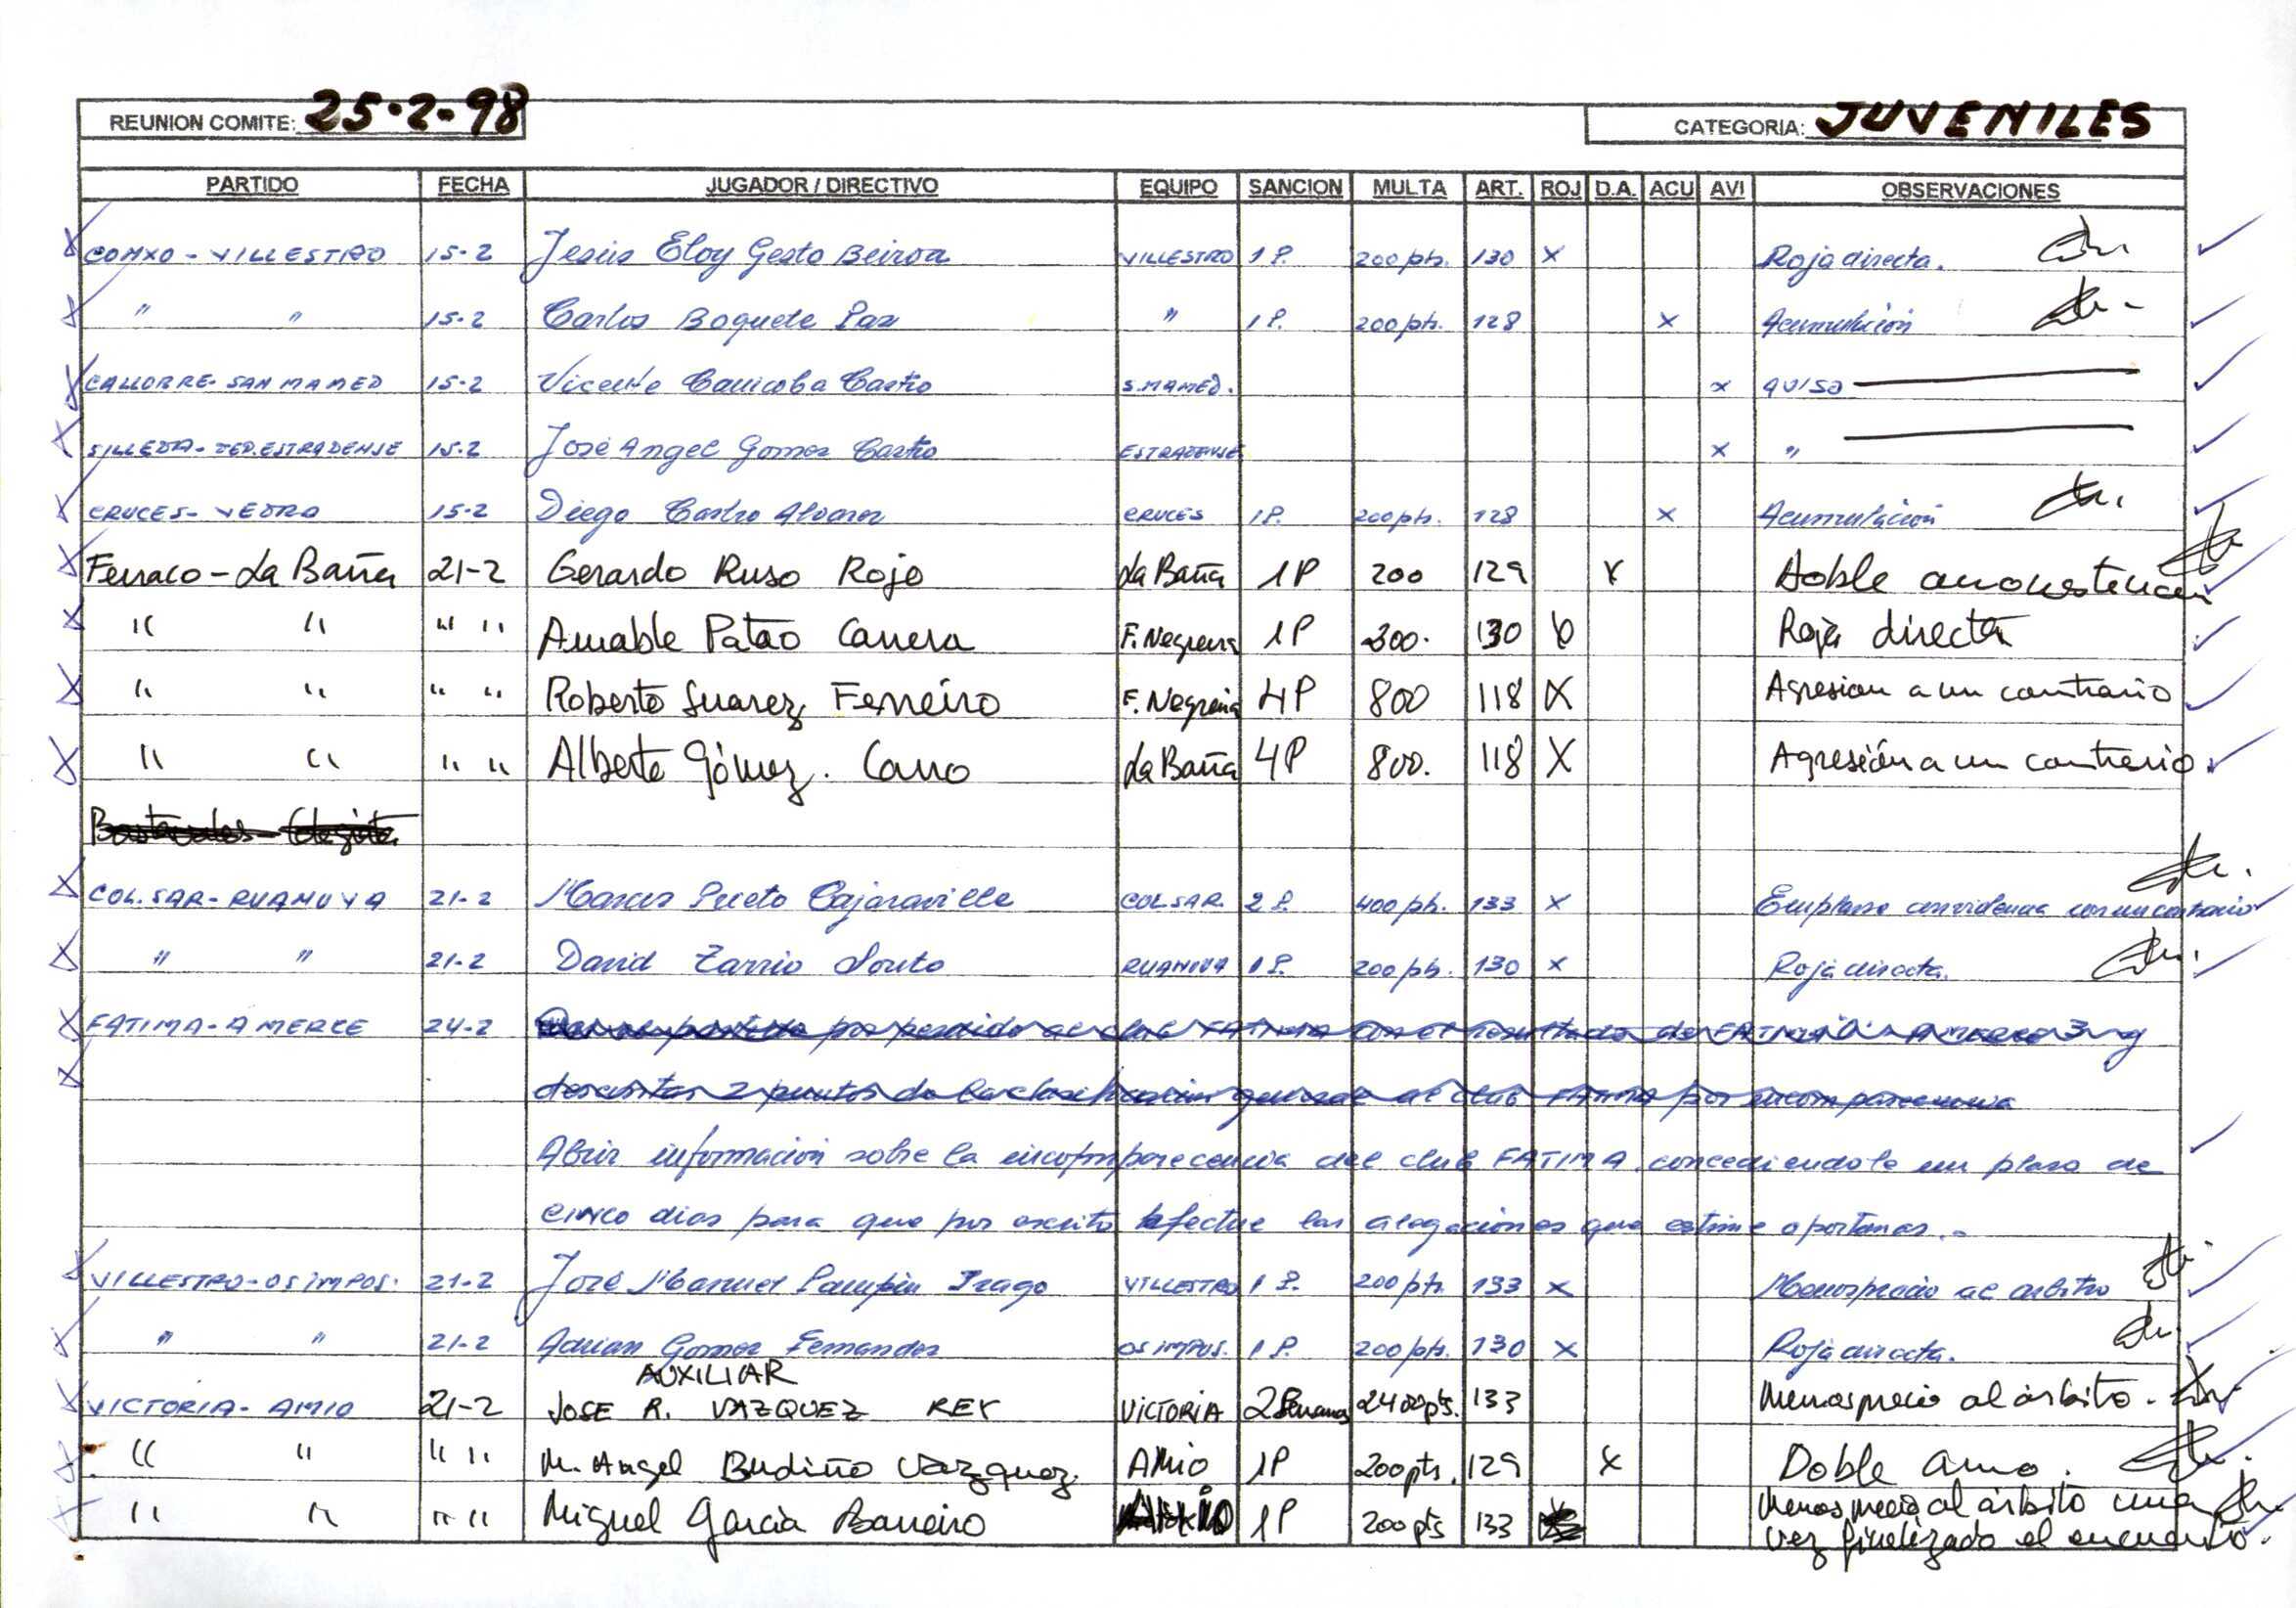 REUNION COMITE: 25-2-98 CATEGORIA: JUVENILES
PARTIDO FECHA JUGADOR / DIRECTIVO EQUIPO SANCION MULTA ART. ROJ D.A. ACU AVI OBSERVACIONES
CONXO - VILLESTRO 15-2 Jesús Eloy Gesto Beiroa VILLESTRO 1 P. 200 pts. 130 X Roja directa.
" " 15-2 Carlos Boquete Paz " 1 P. 200 pts. 128 X Acumulación
CALLOBRE - SAN MAMED 15-2 Vicente Canicoba Castro S. MAMED. X AVISO
SILLEDA - DEP. ESTRADENSE 15-2 José Angel Gomez Castro ESTRADENSE X "
CRUCES - VEDRA 15-2 Diego Castro Alvarez CRUCES 1 P. 200 pts. 128 X Acumulación
Ferraco - La Baña 21-2 Gerardo Ruso Rojo La Baña 1P 200 129 X Doble amonestacion
" " " " Amable Patao Carrera F. Negreira 1P 200. 130 X Roja directa
" " " " Roberto Suarez Ferreiro F. Negreira 4P 800 118 X Agresion a un contrario
" " " " Alberto Gómez. Cano La Baña 4P 800. 118 X Agresión a un contrario
COL. SAR - RUANOVA 21-2 Marcos Prieto Cajaraville COL SAR. 2 P. 400 pts. 133 X Emplearse con violencia con un contrario
" " 21-2 David Zarrio Souto RUANOVA 1 P. 200 pts. 130 X Roja directa.
FATIMA - A MERCE 24-2 por perdido al club FATIMA con el resultado de FATIMA 0 - A MERCE 3 y
descontar 2 puntos de la clasificacion general al club FATIMA por incomparecencia
Abrir información sobre la incomparecencia del club FATIMA, concediendole un plazo de
cinco dias para que por escrito efectue las alegaciones que estime oportunas.-
VILLESTRO - OS IMPOS. 21-2 José Manuel Pampin Trago VILLESTRO 1 P. 200 pts. 133 X Menosprecio al arbitro
" " 21-2 Adrian Gomez Fernandez OS IMPOS. 1 P. 200 pts. 130 X Roja directa.
AUXILIAR
VICTORIA - AMIO 21-2 JOSE R. VAZQUEZ REY VICTORIA 2 Semanas 2400 pts. 133 Menosprecio al árbitro.
" " " " M. Angel Budiño Vazquez. AMIO 1P 200 pts. 129 X Doble amo.
" " " " Miguel Garcia Barreiro 1P 200 pts 133 Menosprecio al árbitro una
vez finalizado el encuentro.